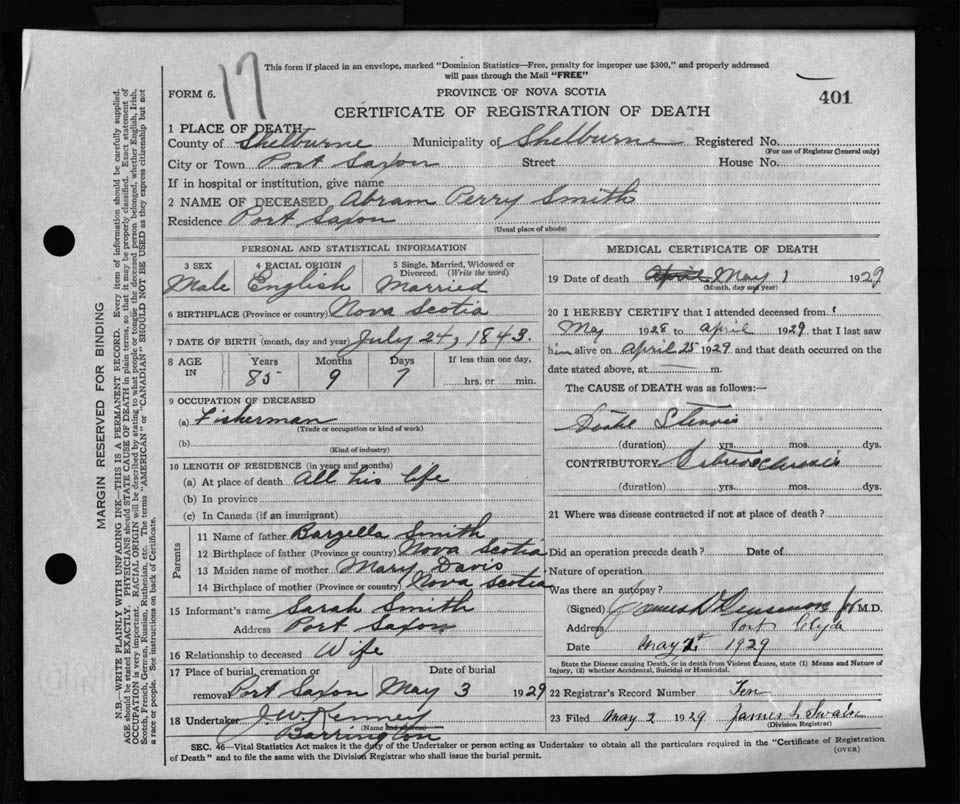 17
This form if placed in an envelope, marked "Dominion Statistics—Free, penalty for improper use $300," and properly addressed
will pass through the Mail "FREE"
FORM 6.
PROVINCE OF NOVA SCOTIA
401
CERTIFICATE OF REGISTRATION OF DEATH
1 PLACE OF DEATH
County of Shelburne Municipality of Shelburne Registered No.
(For use of Registrar General only)
City or Town Port Saxon Street House No.
If in hospital or institution, give name
2 NAME OF DECEASED Abram Perry Smith
Residence Port Saxon
(Usual place of abode)
PERSONAL AND STATISTICAL INFORMATION
3 SEX 4 RACIAL ORIGIN 5 Single, Married, Widowed or
Divorced. (Write the word)
Male English Married
6 BIRTHPLACE (Province or country) Nova Scotia
7 DATE OF BIRTH (month, day and year) July 24, 1843.
8 AGE IN Years Months Days If less than one day,
85 9 7 hrs. or min.
9 OCCUPATION OF DECEASED
(a) Fisherman
(Trade or occupation or kind of work)
(b)
(Kind of industry)
10 LENGTH OF RESIDENCE (in years and months)
(a) At place of death All his life
(b) In province
(c) In Canada (if an immigrant)
Parents
11 Name of father Barzella Smith
12 Birthplace of father (Province or country) Nova Scotia
13 Maiden name of mother Mary Davis
14 Birthplace of mother (Province or country) Nova Scotia
15 Informant's name Sarah Smith
Address Port Saxon
16 Relationship to deceased Wife
17 Place of burial, cremation or Date of burial
removal Port Saxon May 3 1929
18 Undertaker J.W. Kenney
(Name and address)
Barrington
MEDICAL CERTIFICATE OF DEATH
19 Date of death April May 1 1929
(Month, day and year)
20 I HEREBY CERTIFY that I attended deceased from
May 1928 to April 1929 that I last saw
him alive on April 25 1929 and that death occurred on the
date stated above, at m.
The CAUSE of DEATH was as follows:—
Stenosis
(duration) yrs. mos. dys.
CONTRIBUTORY Arteriosclerosis
(duration) yrs. mos. dys.
21 Where was disease contracted if not at place of death?
Did an operation precede death? Date of
Nature of operation
Was there an autopsy?
(Signed) James M.D.
Address Port Clyde
Date May 2 1929
State the Disease causing Death, or in death from Violent Causes, state (1) Means and Nature of
Injury, (2) whether Accidental, Suicidal or Homicidal.
22 Registrar's Record Number Ten
23 Filed May 2 1929 James Swain
(Division Registrar)
SEC. 46—Vital Statistics Act makes it the duty of the Undertaker or person acting as Undertaker to obtain all the particulars required in the "Certificate of Registration
of Death" and to file the same with the Division Registrar who shall issue the burial permit.
(OVER)
MARGIN RESERVED FOR BINDING
N.B.—WRITE PLAINLY WITH UNFADING INK—THIS IS A PERMANENT RECORD. Every item of information should be carefully supplied.
AGE should be stated EXACTLY. PHYSICIANS should STATE CAUSE OF DEATH in plain terms, so that it may be properly classified. Exact statement of
OCCUPATION is very important. RACIAL ORIGIN will be described by stating to what people or tongue the deceased person belonged, whether English, Irish,
Scotch, French, German, Russian, Ruthenian, etc. The terms "AMERICAN" or "CANADIAN" SHOULD NOT BE USED as they express citizenship but not
a race or people. See instructions on back of Certificate.